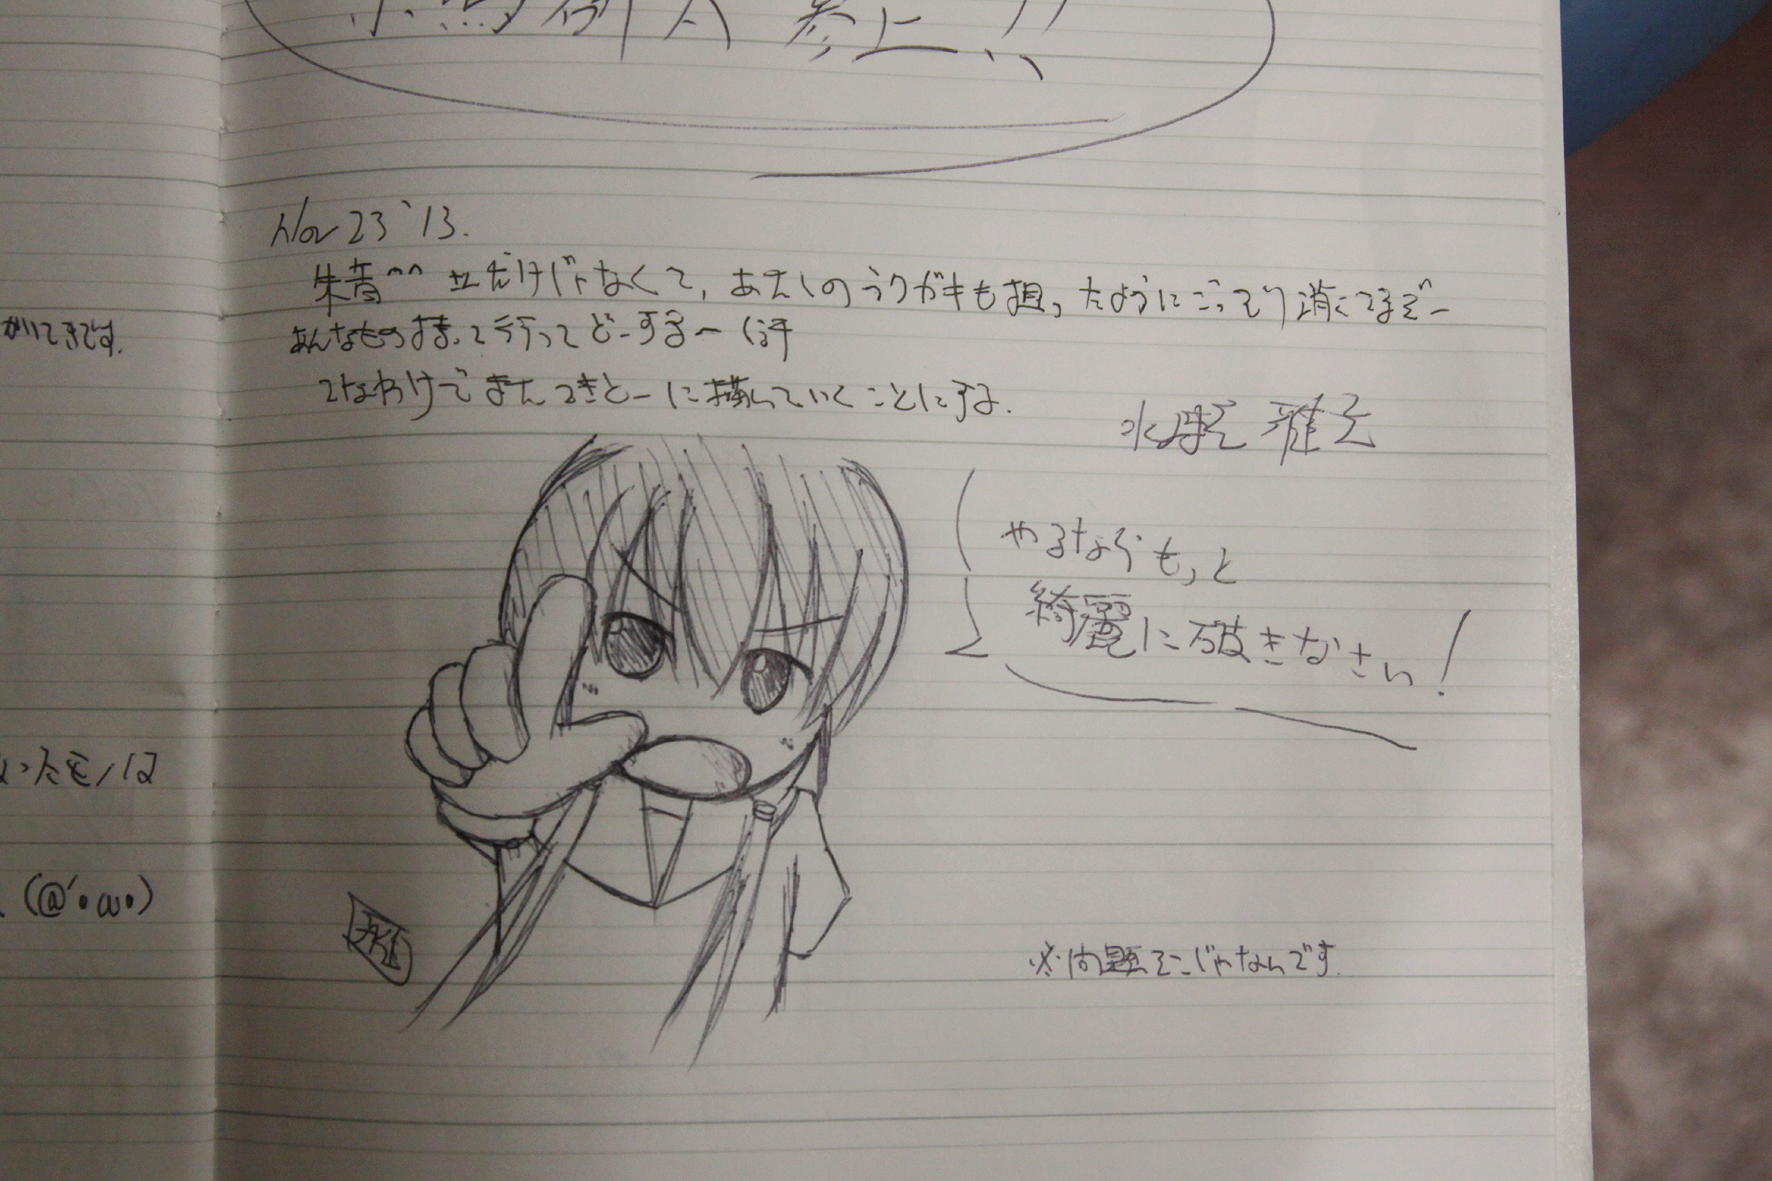 参上!!
Nov 23 '13.
だけじゃなくて、あたしのラクガキも狙ったようにごっそり消えてるぞー
あんなもの持って行ってどーするー(汗
てなわけでまたてきとーに描いていくことにする.
やるならもっと
綺麗に破きなさい!
※問題そこじゃないんです.
かいてきです.
ったモノは
(@'•ω•)